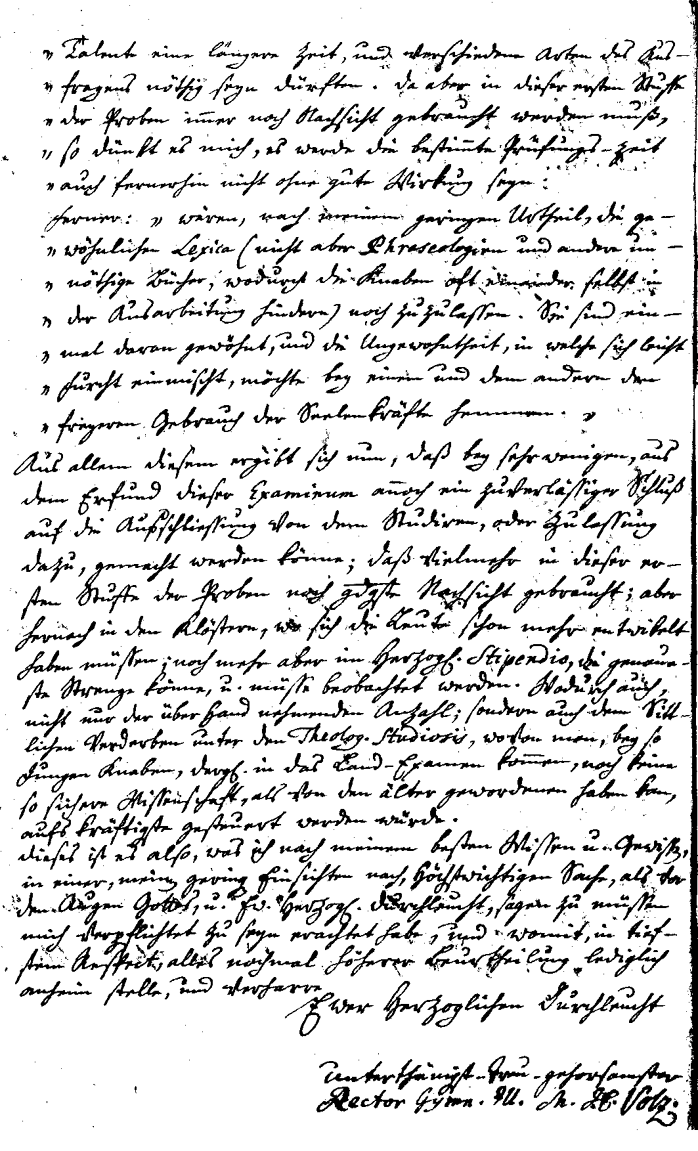 " Talente eine längere Zeit, und verschiedene Arten des Aus-
" fragens nöthig seyn dürften. Da aber in dieser ersten Stuffe
" der Proben immer noch Nachsicht gebraucht werden muß,
" so dünkt es mich, es werde die bestimmte Prüfungs-Zeit
" auch fernerhin nicht ohne gute Wirkung seyn.
Ferner: " wären, nach meinem geringen Urtheil, die ge-
" wöhnlichen Lexica (nicht aber Phraseologien und andere un-
" nöthige Bücher, wodurch die Knaben oft einander selbst in
" der Ausarbeitung hindern) noch zuzulassen. Sie sind ein-
" mal daran gewöhnt, und die Ungewohntheit, in welche sich leicht
" Furcht einmischt, möchte bey einem und dem andern den
" freyeren Gebrauch der Seelenkräfte hemmen. "
Aus allem diesem ergibt sich nun, daß bey sehr wenigen, aus
dem Erfund dieser Examinum annoch ein zuverlässiger Schluß
auf die Ausschliessung von dem Studiren, oder Zulassung
dazu, gemacht werden könne; daß vielmehr in dieser er-
sten Stuffe der Proben noch gdgste Nachsicht gebraucht; aber
hernach in den Klöstern, wo sich die Leute schon mehr entwikelt
haben müssen; noch mehr aber im Herzogl. Stipendio, die genaue-
ste Strenge könne, u. müsse beobachtet werden. Wodurch auch,
nicht nur der überhand nehmenden Anzahl; sondern auch dem Sitt-
lichen Verderben unter den Theolog. Studiosis, wovon man, bey so
Jungen Knaben, dergl. in das Land-Examen kommen, noch keine
so sichere Wissenschaft, als von den älter gewordenen haben kan,
aufs kräftigste gesteuert werden würde.
Dieses ist es also, was ich nach meinem besten Wissen u. Gewissen,
in einer, meinen geringen Einsichten nach, Höchstwichtigen Sache, als vor
den Augen Gottes, u. Ew. Herzogl. Durchleucht, sagen zu müssen
mich verpflichtet zu seyn erachtet habe, und womit, in tief-
stem Respect, alles nochmal höherer Beurtheilung lediglich
anheim stelle, und verharre
Ewer Herzoglichen Durchleucht
unterthänigst-treu-gehorsamster
Rector Gymn. Ill. M. Volz.